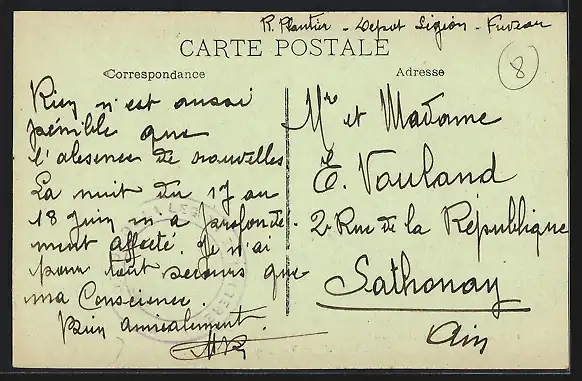 R. Plantier - Depot Légion - Fuveau
CARTE POSTALE
Correspondance
Adresse
8
Rien n'est aussi
pénible que
l'absence de nouvelles
La nuit du 17 au
18 Juin m'a profondé-
ment affecté. Je n'ai
pour tout secours que
ma Conscience.
Bien amicalement.
Mr et Madame
E. Vauland
2 Rue de la République
Sathonay
Ain